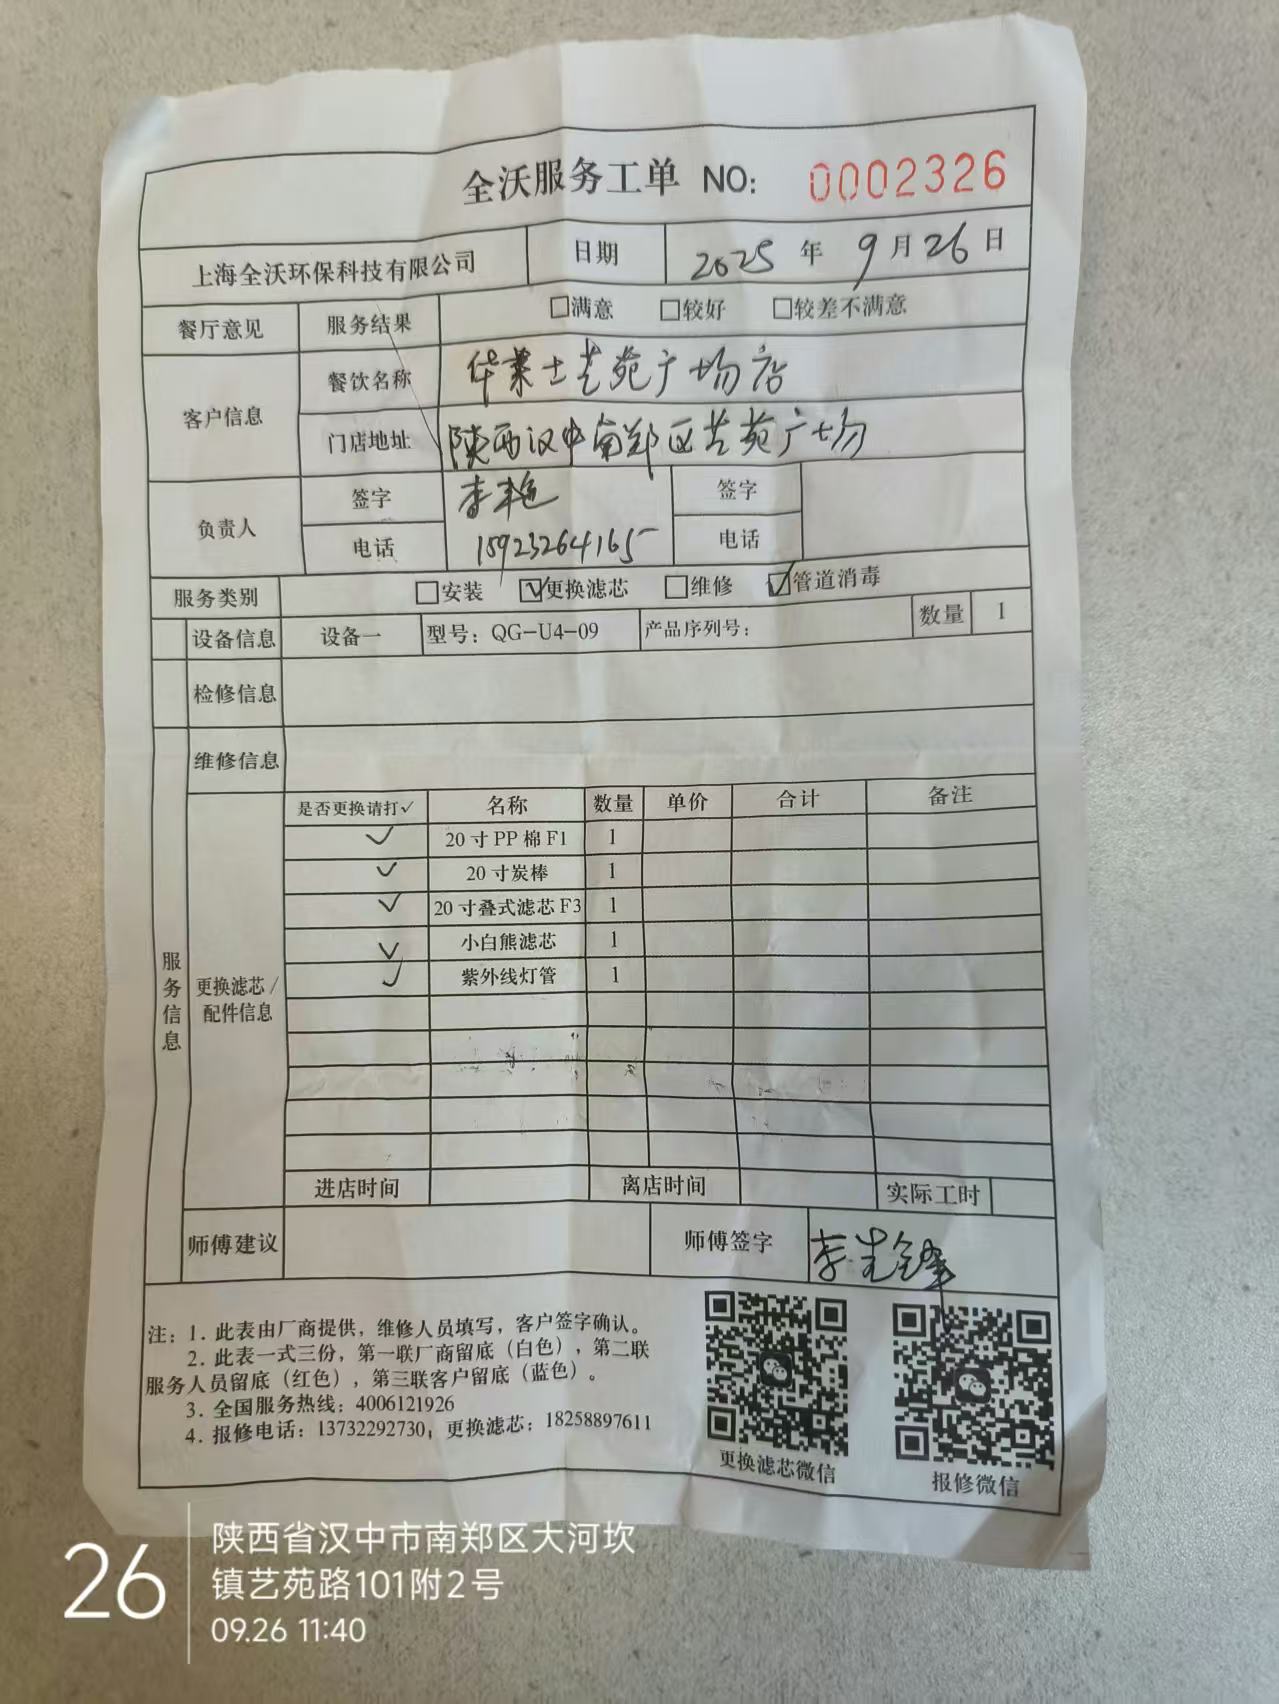 全沃服务工单 NO: 0002326
上海全沃环保科技有限公司 日期 2025 年 9 月 26 日
餐厅意见 服务结果 □满意 □较好 □较差不满意
客户信息 餐饮名称 华莱士艺苑广场店
门店地址 陕西汉中南郑区艺苑广场
负责人 签字 李艳 签字
电话 15923264165 电话
服务类别 □安装 ☑更换滤芯 □维修 ☑管道消毒
设备信息 设备一 型号: QG-U4-09 产品序列号: 数量 1
检修信息
维修信息
服务信息
更换滤芯/
配件信息
是否更换请打✓ 名称 数量 单价 合计 备注
✓ 20寸PP棉F1 1
✓ 20寸炭棒 1
✓ 20寸叠式滤芯F3 1
✓ 小白熊滤芯 1
✓ 紫外线灯管 1
进店时间 离店时间 实际工时
师傅建议 师傅签字 李先锋
注: 1. 此表由厂商提供, 维修人员填写, 客户签字确认。
2. 此表一式三份, 第一联厂商留底(白色), 第二联
服务人员留底(红色), 第三联客户留底(蓝色)。
3. 全国服务热线: 4006121926
4. 报修电话: 13732292730; 更换滤芯: 18258897611
更换滤芯微信 报修微信
26
陕西省汉中市南郑区大河坎
镇艺苑路101附2号
09.26 11:40